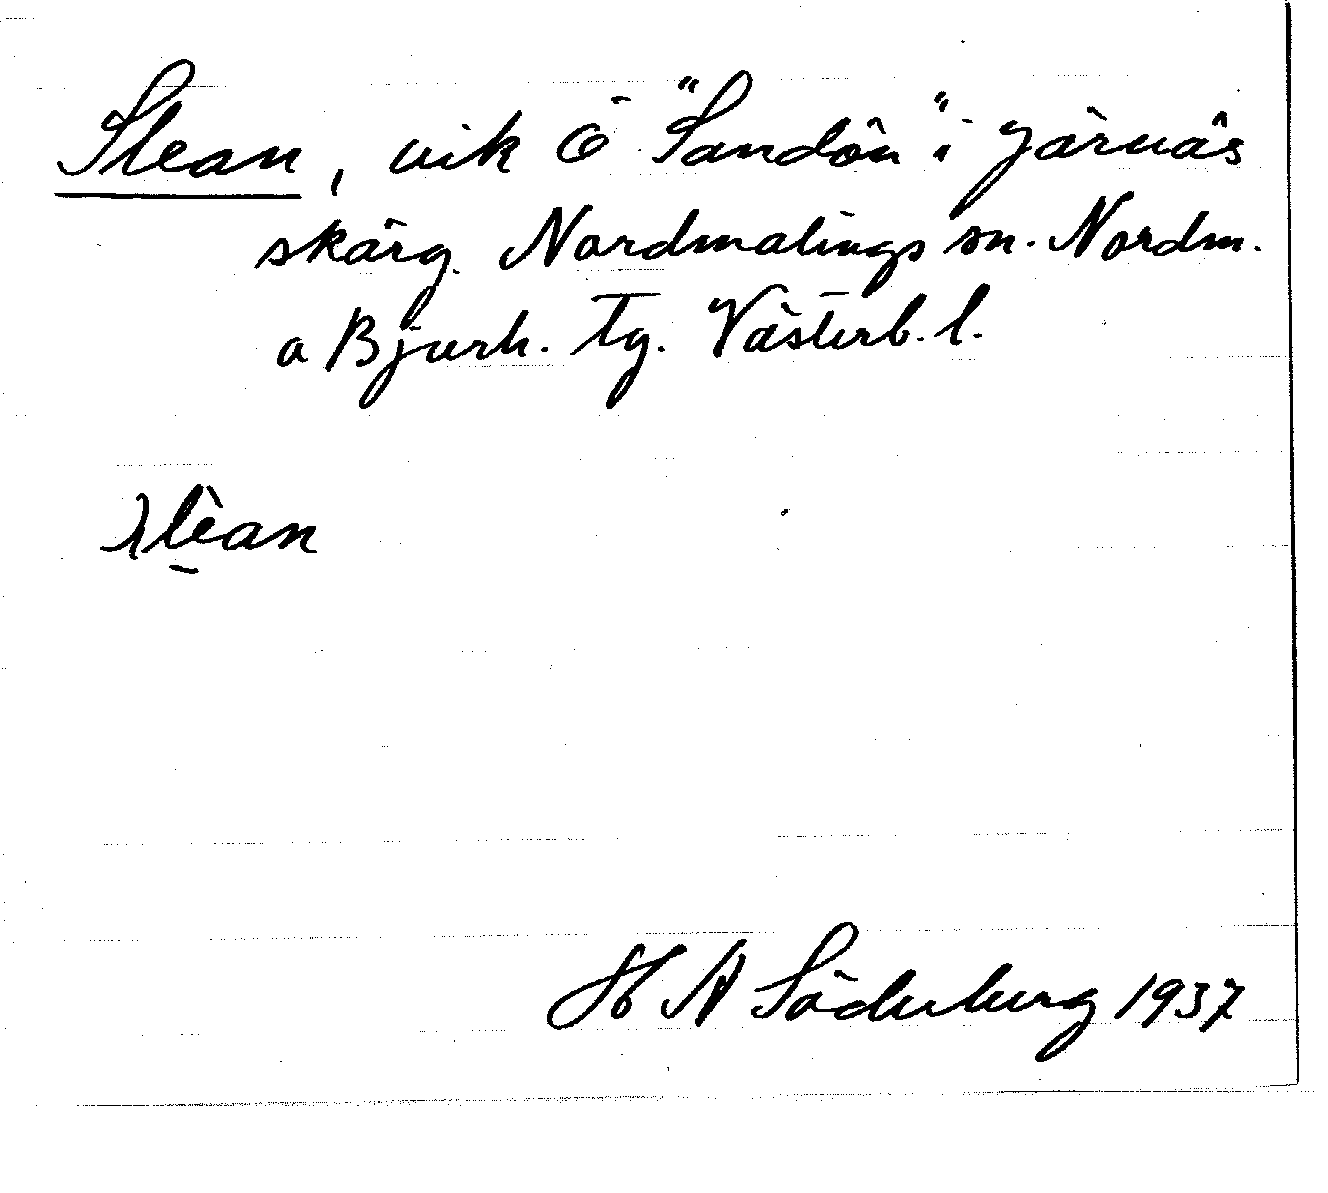 Slean, vik Ö "Sandön" i Järnäs
skärg. Nordmalings sn. Nordm.
o Bjurh. Tg. Västerb. l.
slèan
H A Söderberg 1937